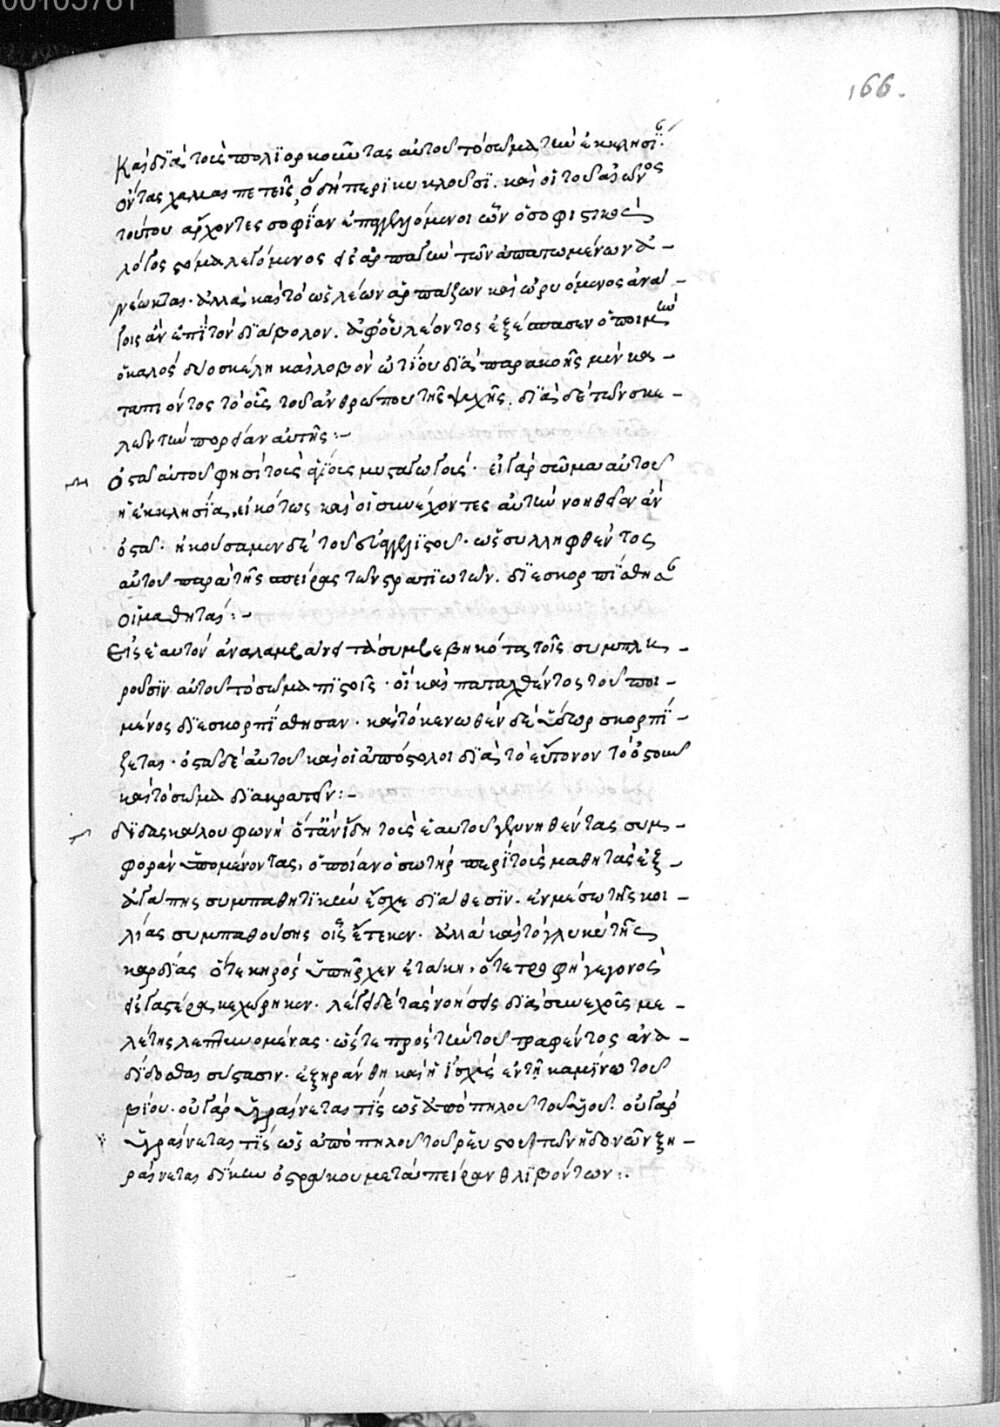 00105761
166.
Καὶ διὰ τοὺς πολιορκοῦντας αὐτοῦ τὸ σῶμα τὴν ἐκκλησίαν
ὄντας χαμαιπετεῖς, ὃ δὴ περικυκλοῦσι. καὶ οἱ τοῦ αἰῶνος
τούτου ἄρχοντες σοφίαν ἐπαγγελλόμενοι ὧν ὁ σοφιστικὸς
λόγος στόμα λεγόμενος εἰς ἁρπαγὴν τῶν ἀπατωμένων ἀ-
νέωκται. ἀλλὰ καὶ τὸ ὡς λέων ἁρπάζων καὶ ὠρυόμενος ἀνά-
γοις ἂν ἐπὶ τὸν διάβολον. ἀφ' οὗ λέοντος ἐξέσπασεν ὁ ποιμὴν
ὁ καλὸς δύο σκέλη καὶ λοβὸν ὠτίου διὰ παρακοῆς μὲν κα-
ταπιόντος τὸ οὖς τοῦ ἀνθρώπου τῆς ψυχῆς, διὰ δὲ τῶν σκε-
λῶν τὴν πορείαν αὐτῆς:-
ὀστᾶ αὐτοῦ φησὶ τοὺς θείους μυσταγωγούς. εἰ γὰρ σῶμα αὐτοῦ
ἡ ἐκκλησία, εἰκότως καὶ οἱ συνέχοντες αὐτὴν νοηθεῖεν ἂν
ὀστᾶ. ἠκούσαμεν δὲ τοῦ εὐαγγελιστοῦ. ὡς συλληφθέντος
αὐτοῦ παρὰ τῆς σπείρας τῶν στρατιωτῶν. διεσκορπίσθησαν
οἱ μαθηταί:-
Εἰς ἑαυτὸν ἀναλαμβάνει τὰ συμβεβηκότα τοῖς συμπλη-
ροῦσιν αὐτοῦ τὸ σῶμα πιστοῖς. οἳ καὶ παταχθέντος τοῦ ποι-
μένος διεσκορπίσθησαν. καὶ τὸ κενωθὲν δὲ ὕδωρ σκορπί-
ζεται. ὀστᾶ δὲ αὐτοῦ καὶ οἱ ἀπόστολοι διὰ τὸ εὔτονον τὸ ὀστοῦν
καὶ τὸ σῶμα διακρατεῖν:-
διδασκάλου φωνὴ ὅταν ἴδῃ τοὺς ἑαυτοῦ γεννηθέντας συμ-
φορὰν ὑπομένοντας, ὁποίαν ὁ σωτὴρ περὶ τοὺς μαθητὰς ἐξ
ἀγάπης συμπαθητικὴν ἔσχε διάθεσιν. ἐν μέσῳ τῆς κοι-
λίας συμπαθούσης οἷς ἔτεκεν. ἀλλὰ καὶ τὸ γλυκὺ τῆς
καρδίας ὅτε κηρὸς ὑπῆρχεν ἐτάκη, ὅτε τροφὴ γεγονὸς
εἰς γαστέρα κεχώρηκεν. λέγει δὲ τὰς νοήσεις διὰ συνεχοῦς με-
λέτης λεπτυνομένας. ὥστε πρὸς τὴν τοῦ τραφέντος ἀνα-
δίδοσθαι σύστασιν. ἐξηράνθη καὶ ἡ ἰσχὺς ἐν τῇ καμίνῳ τοῦ
βίου. οὐ γὰρ ὑγραίνεταί τις ὡς ἀπὸ πηλοῦ τοῦ ζῴου. οὐ γὰρ
ὑγραίνεταί τις ὡς ἀπὸ πηλοῦ τοῦ ῥευστοῦ τῶν ἡδονῶν ξη-
ραίνεται δίκην ὀστράκου μετὰ πεῖραν θλιβόντων:.